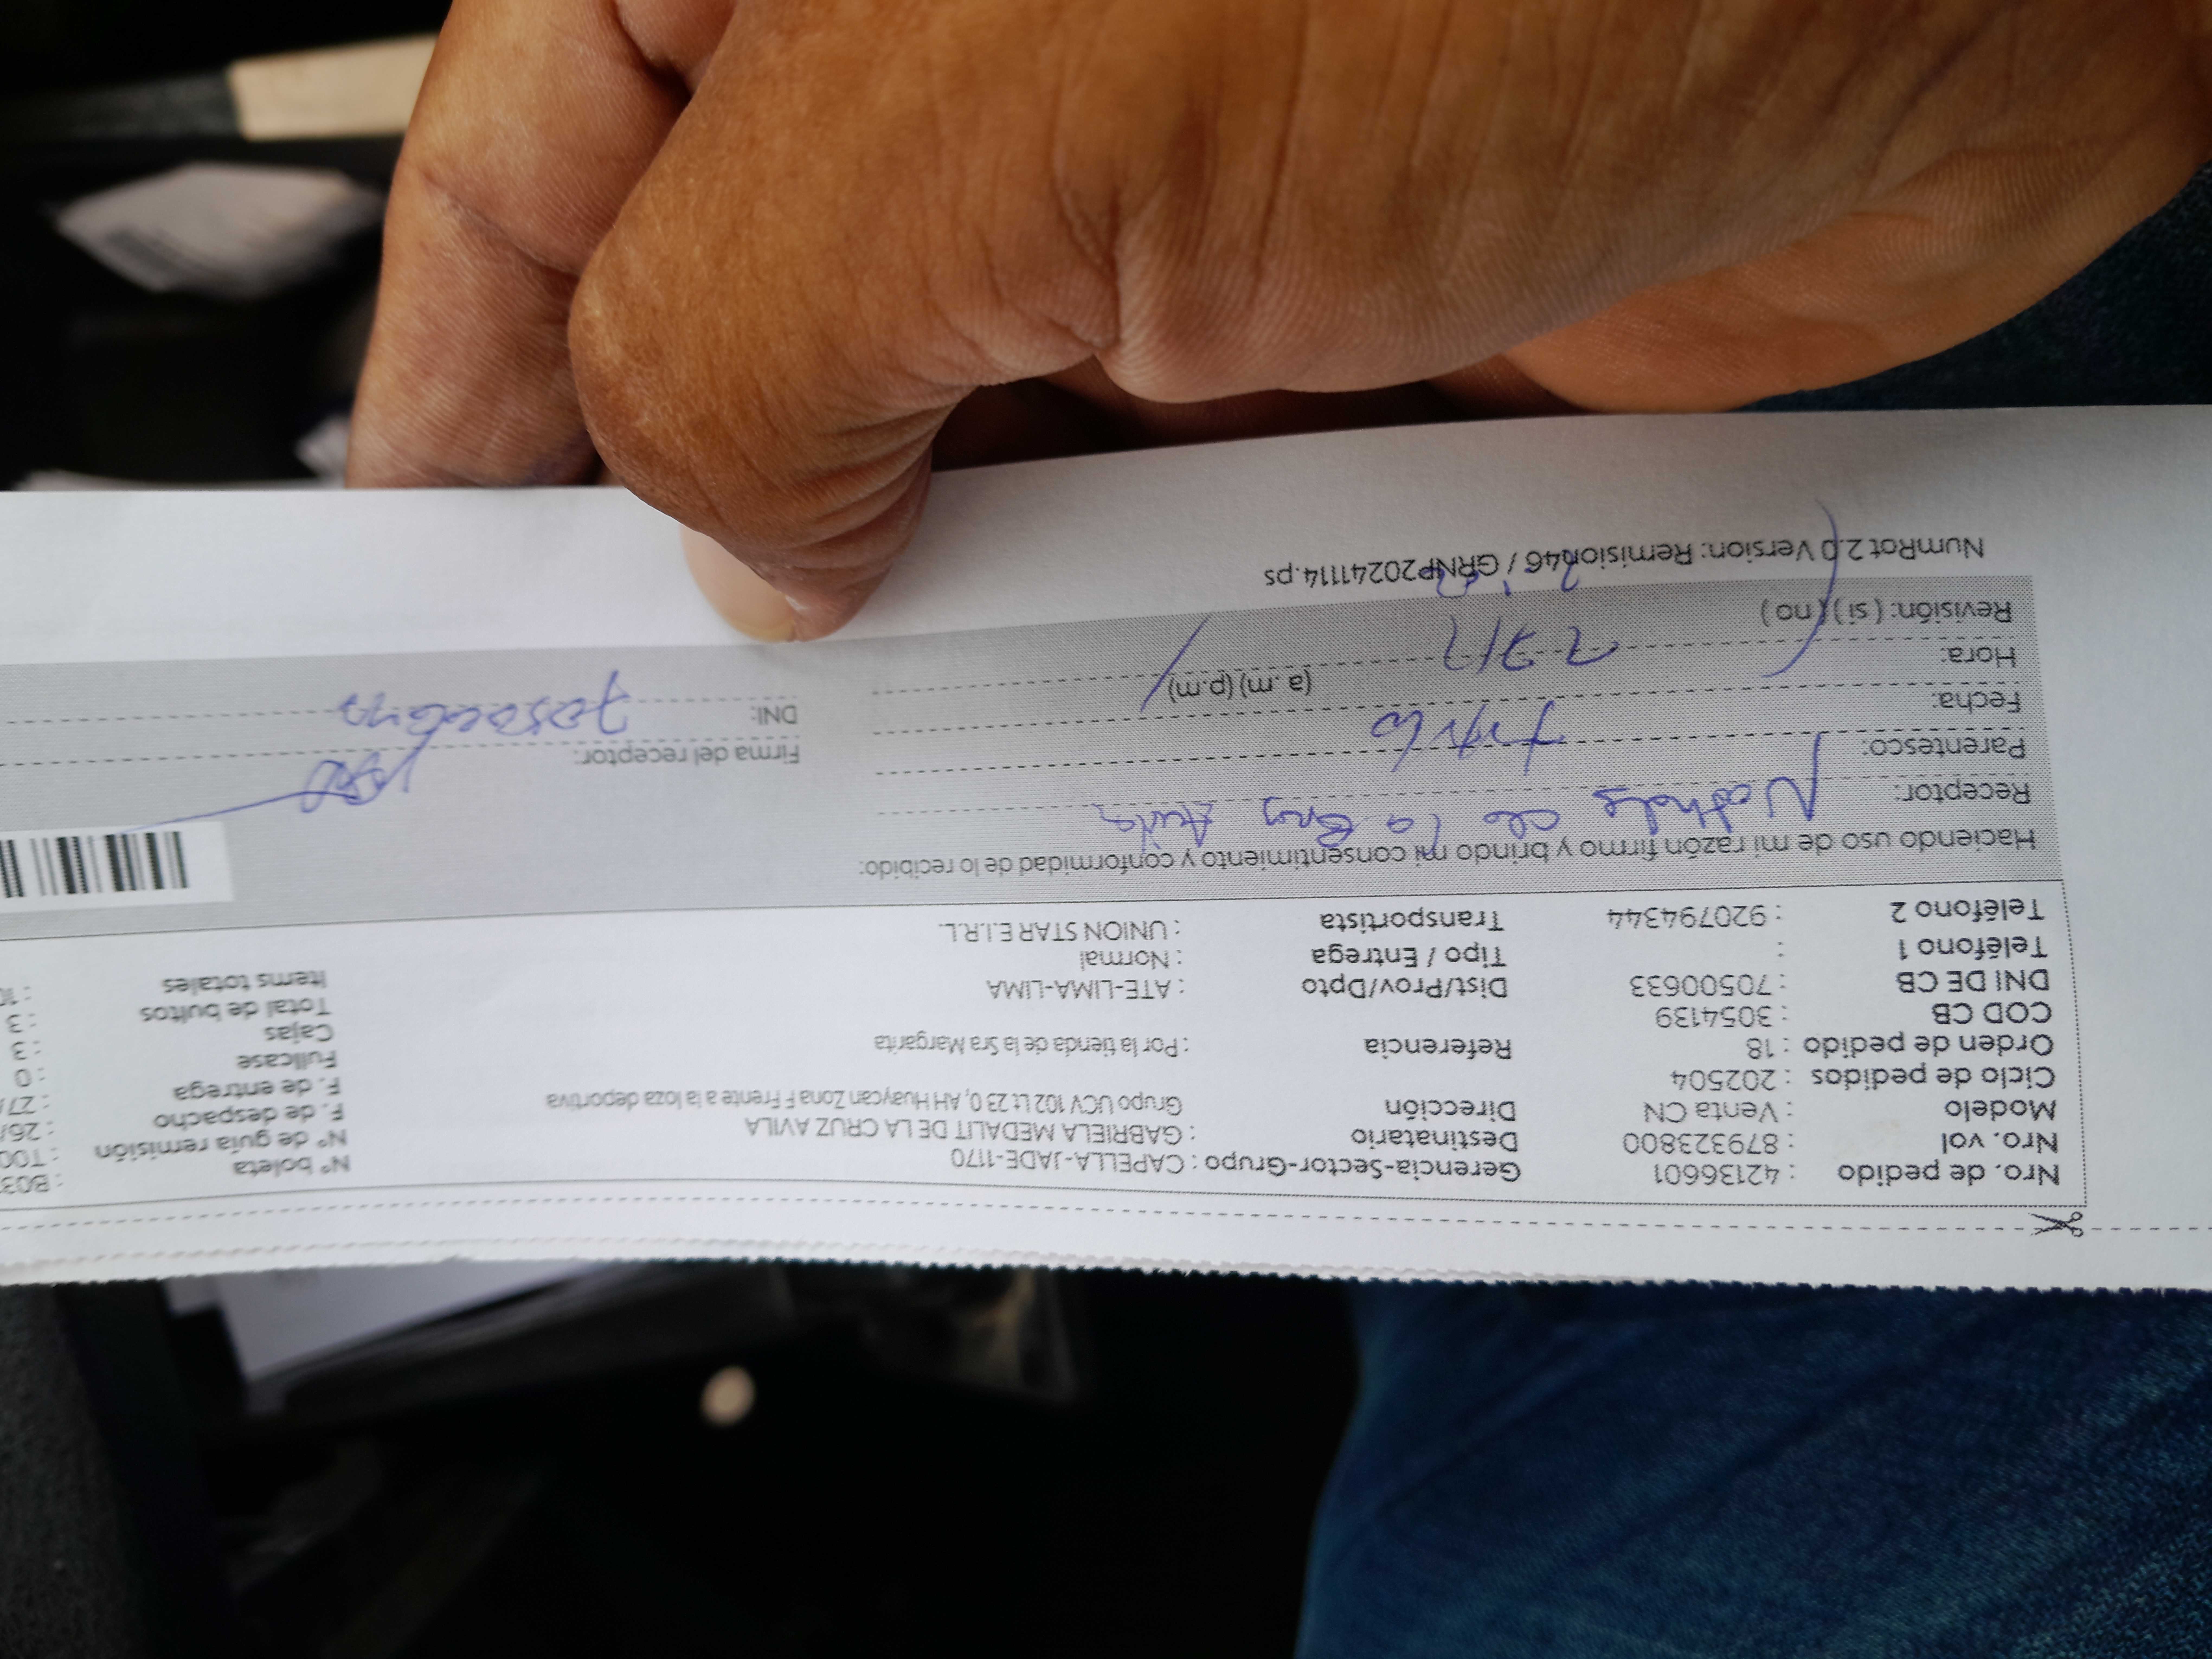 Nro. de pedido : 42136601 Gerencia-Sector-Grupo : CAPELLA-JADE-1170 N° boleta : B03
Nro. vol : 879323800 Destinatario : GABRIELA MEDALIT DE LA CRUZ AVILA N° de guía remisión : T00
Modelo : Venta CN Dirección Grupo UCV 102 Lt 23 0, AH Huaycan Zona F Frente a la loza deportiva F. de despacho : 26/
Ciclo de pedidos : 202504 F. de entrega : 27/
Orden de pedido : 18 Referencia : Por la tienda de la Sra Margarita Fullcase : 0
COD CB : 3054139 Cajas : 3
DNI DE CB : 70500633 Dist/Prov/Dpto : ATE-LIMA-LIMA Total de bultos : 3
Teléfono 1 : Tipo / Entrega : Normal Items totales : 10
Teléfono 2 : 920794344 Transportista : UNION STAR E.I.R.L.
Haciendo uso de mi razón firmo y brindo mi consentimiento y conformidad de lo recibido:
Receptor: de la Avila
Parentesco: Firma del receptor:
Fecha: DNI:
Hora: (a.m) (p.m)
Revisión: ( si ) ( no )
NumRot 2.0 Version: Remision046 / GRNP20241114.ps